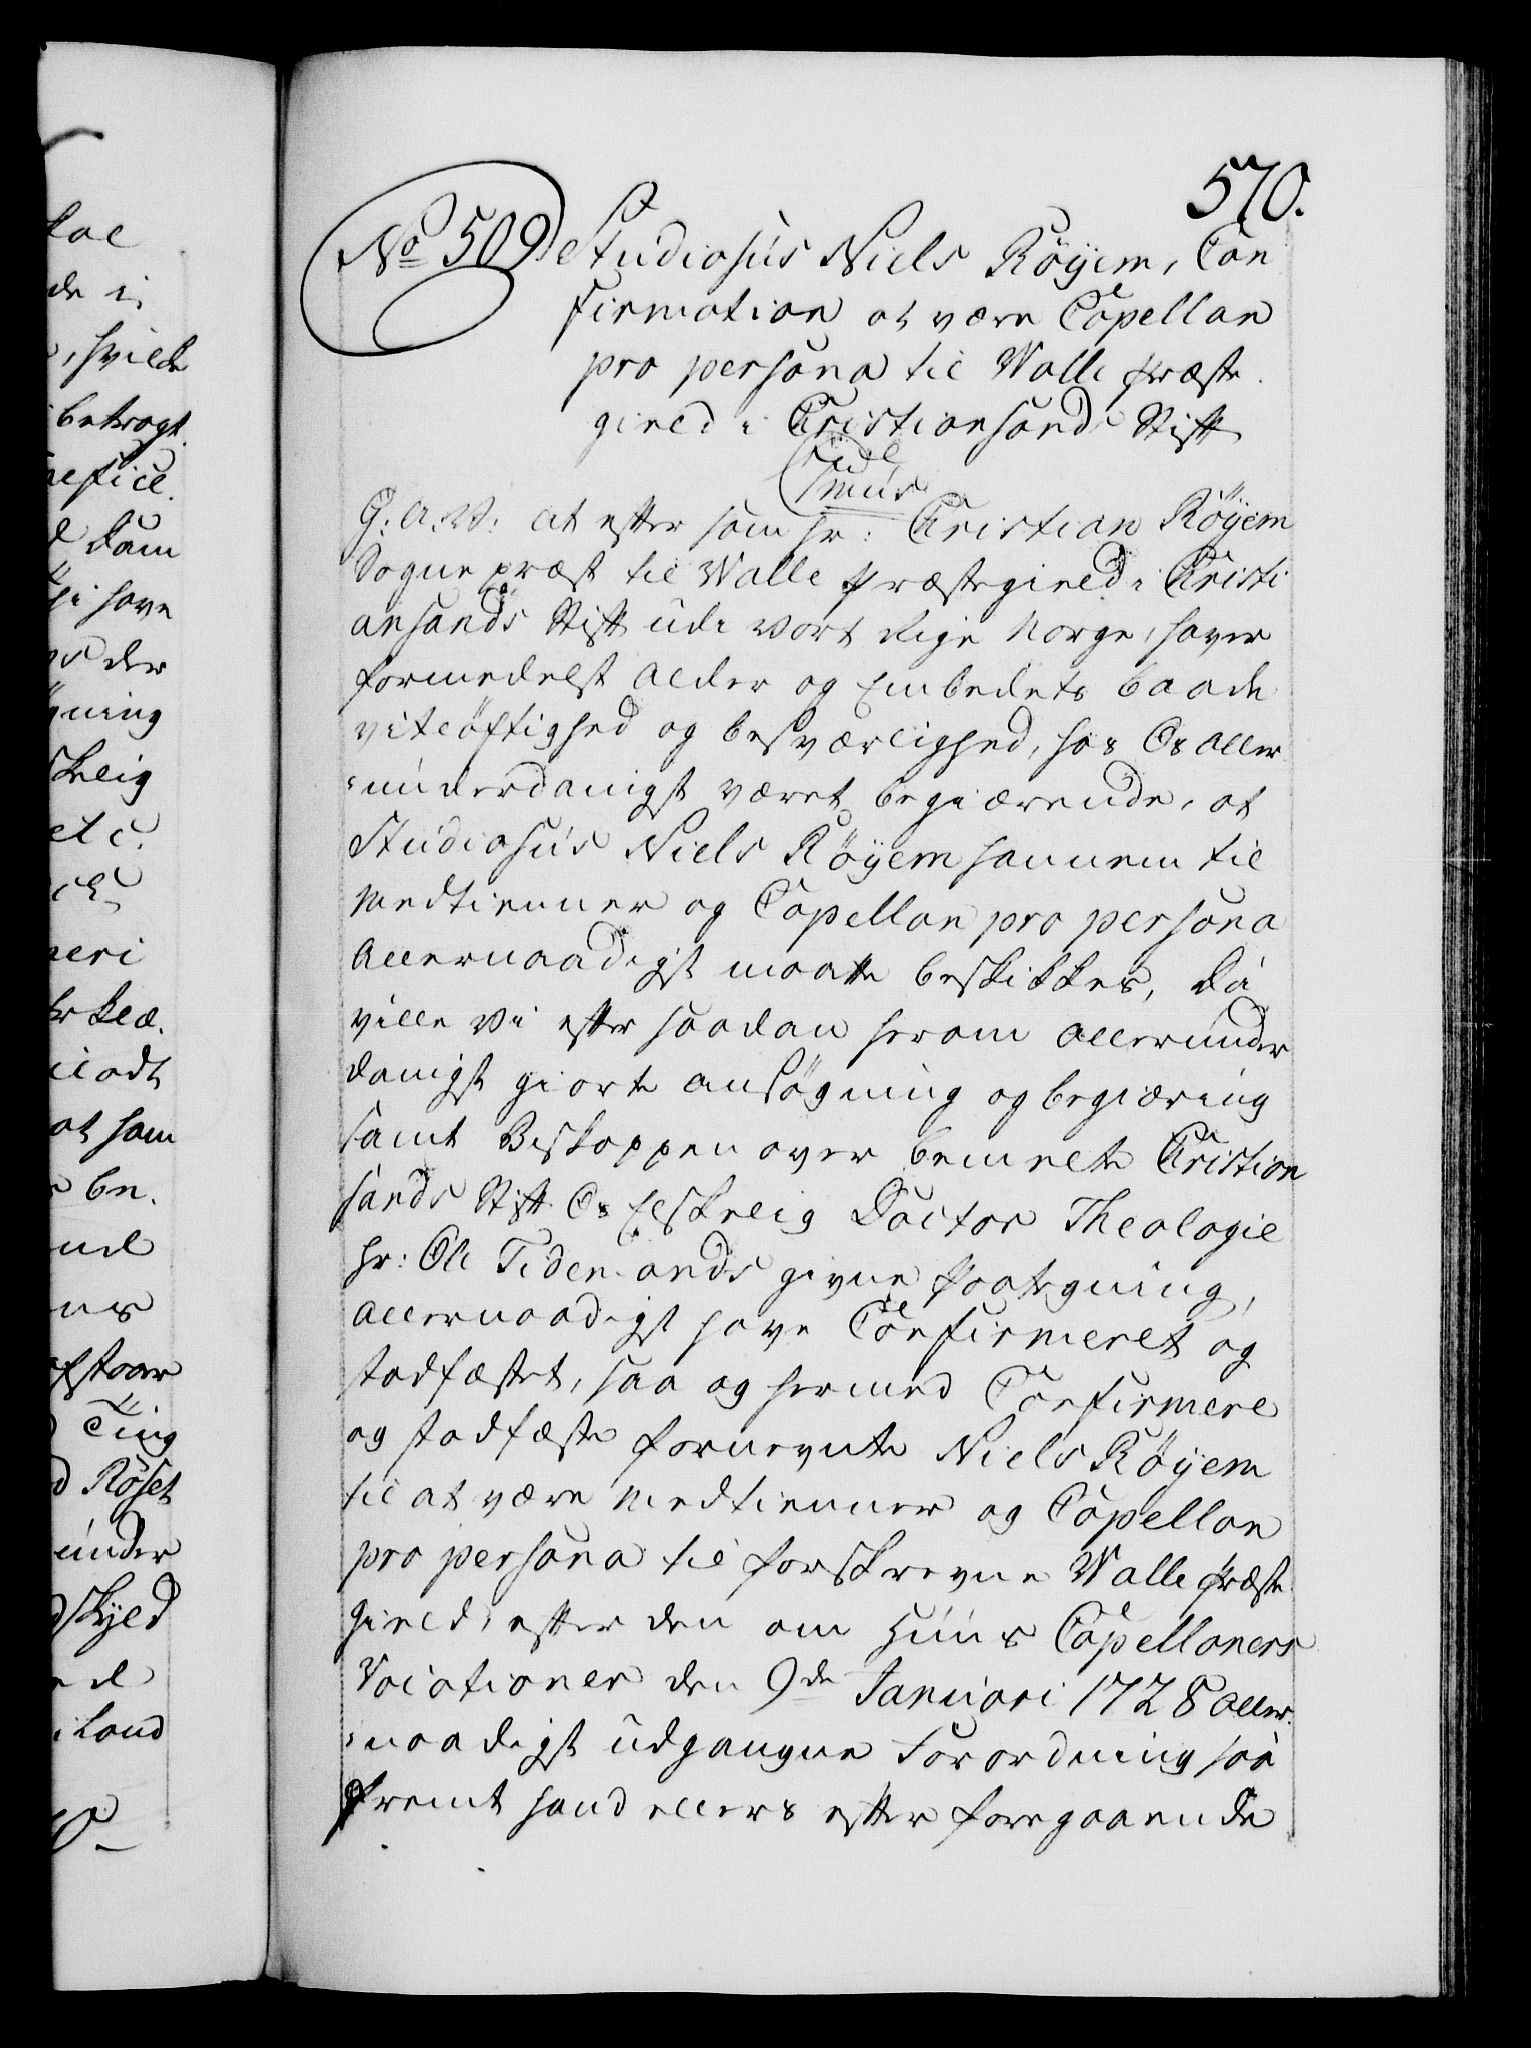 570.
No 509 Studiosus Niels Röyem, Con
firmation at være Capellan
pro persona til Walle Præste
gield i Christiansands Stift
G. A. V. at efter som Hr: Christian Röyem
Sogne præst til Walle Præstegield i Christi
ansands Stift udi Vort Rige Norge, haver
formedelst Alder og Embedets baade
vitlöftighed og besværlighed, hos Os aller
underdanigst været begiærende, at
Studiosus Niels Röyem hannem til
Medtienner og Capellan pro persona
Allernaadigst maatte beskikkes, Da
ville Vi efter saadan herom allerunder
danigst giorte ansögning og begiæring
samt Biskoppen over bemelte Christian
sands Stift Os Elskelig Doctor Theologie
Hr: Ole Tidemands givne Paategning,
allernaadigst have Confirmeret og
stadfæstet, saa og hermed Confirmere
og stadfæste fornevnte Niels Röyem
til at være Medtienner og Capellan
pro persona til forskrevne Walle Præste
Gield, efter den om Huus Capellaners
Vocationer den 9de Januari 1728 aller
naadigst udgangne Forordning saa
fremt hand ellers efter foregaaende